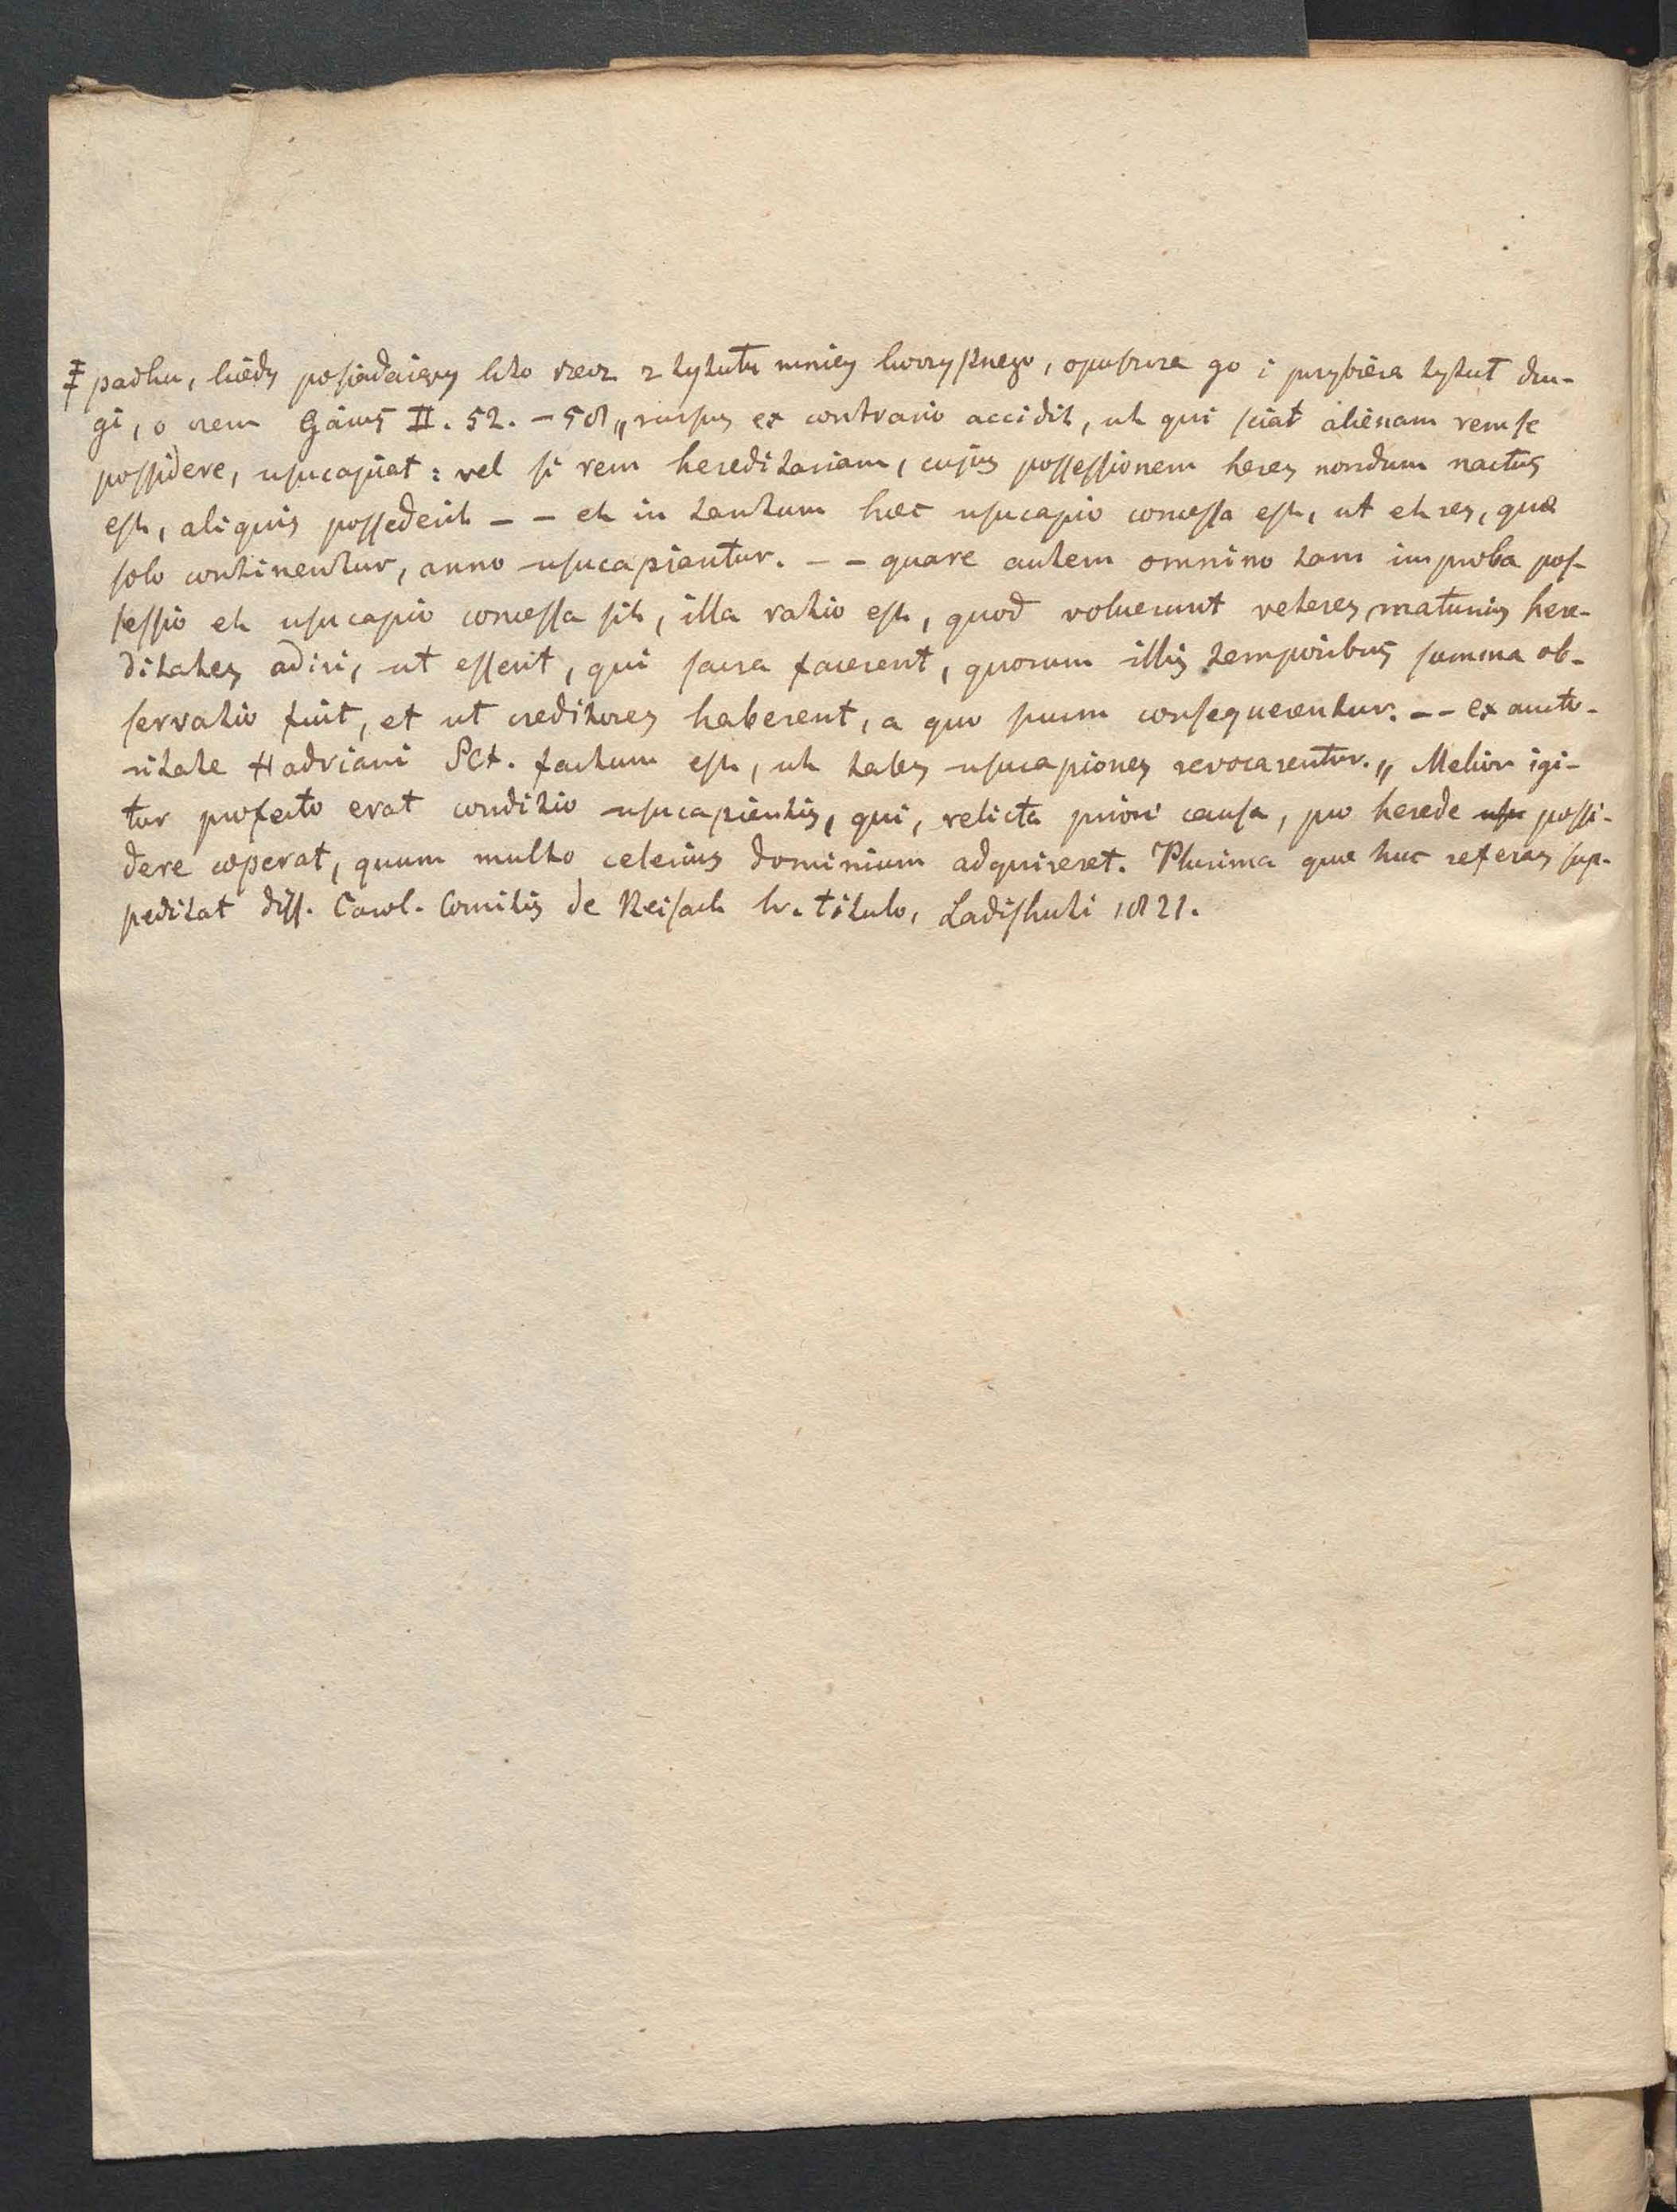 ‡ padku, kiedy posiadaiący kto rzecz z tytułu mniey korzystnego, opuszcza go i przybiera tytuł dru-
gi, o czem Gaius II. 52. - 58 „rursus ex contrario accidit, ut qui sciat alienam rem se
possidere, usucapiat: vel si rem hereditariam, cujus possessionem heres nondum nactus
est, aliquis possederit - - et in tantum hæc usucapio concessa est, ut et res, quæ
solo continentur, anno usucapiantur. - - quare autem omnino tam improba pos-
sessio et usucapio concessa sit, illa ratio est, quod voluerunt veteres, maturius here-
ditates adiri, ut essent, qui sacra facerent, quorum illis temporibus summa ob-
servatio fuit, et ut creditores haberent, a quo suum consequerentur. - - ex aucto-
ritate Hadriani SCt. factum est, ut tales usucapiones revocarentur.„ Melior igi-
tur profecto erat conditio usucapientis, qui, relicta priori causa, pro herede usu possi-
dere cœperat, quum multo celerius dominium adquireret. Plurima quæ huc referas sup-
peditat diss. Carol. Comitis de Reisach h. titulo, Ladishuti 1821.